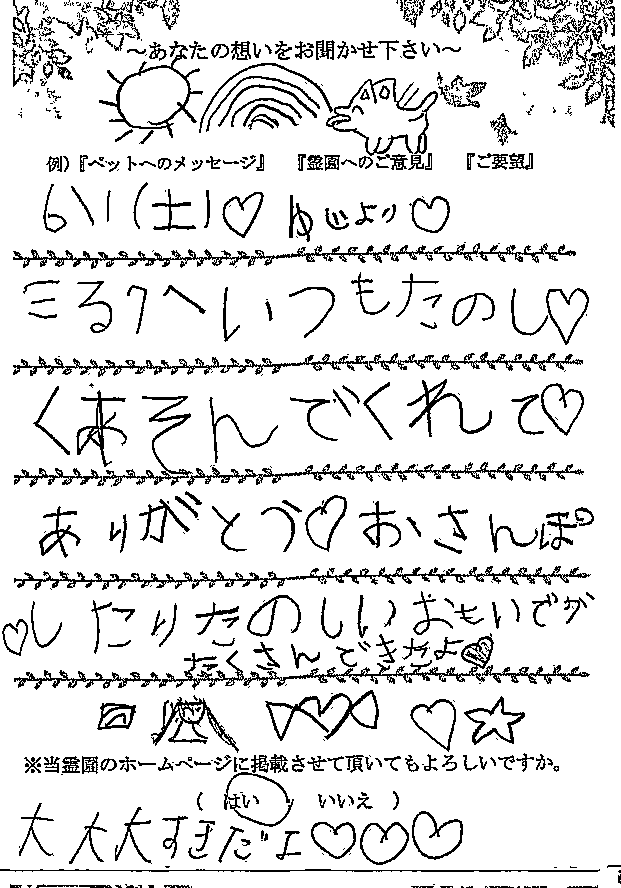 ～あなたの想いをお聞かせ下さい～
例)『ペットへのメッセージ』 『霊園へのご意見』 『ご要望』
6\1(土)♡ゆいより♡
ミるクへいつもたのし♡
くあそんでくれて♡
ありがとう♡おさんぽ
♡したりたのしいおもいでが
たくさんできたよ♡
※当霊園のホームページに掲載させて頂いてもよろしいですか。
( はい ・ いいえ )
大大大すきだよ♡♡♡